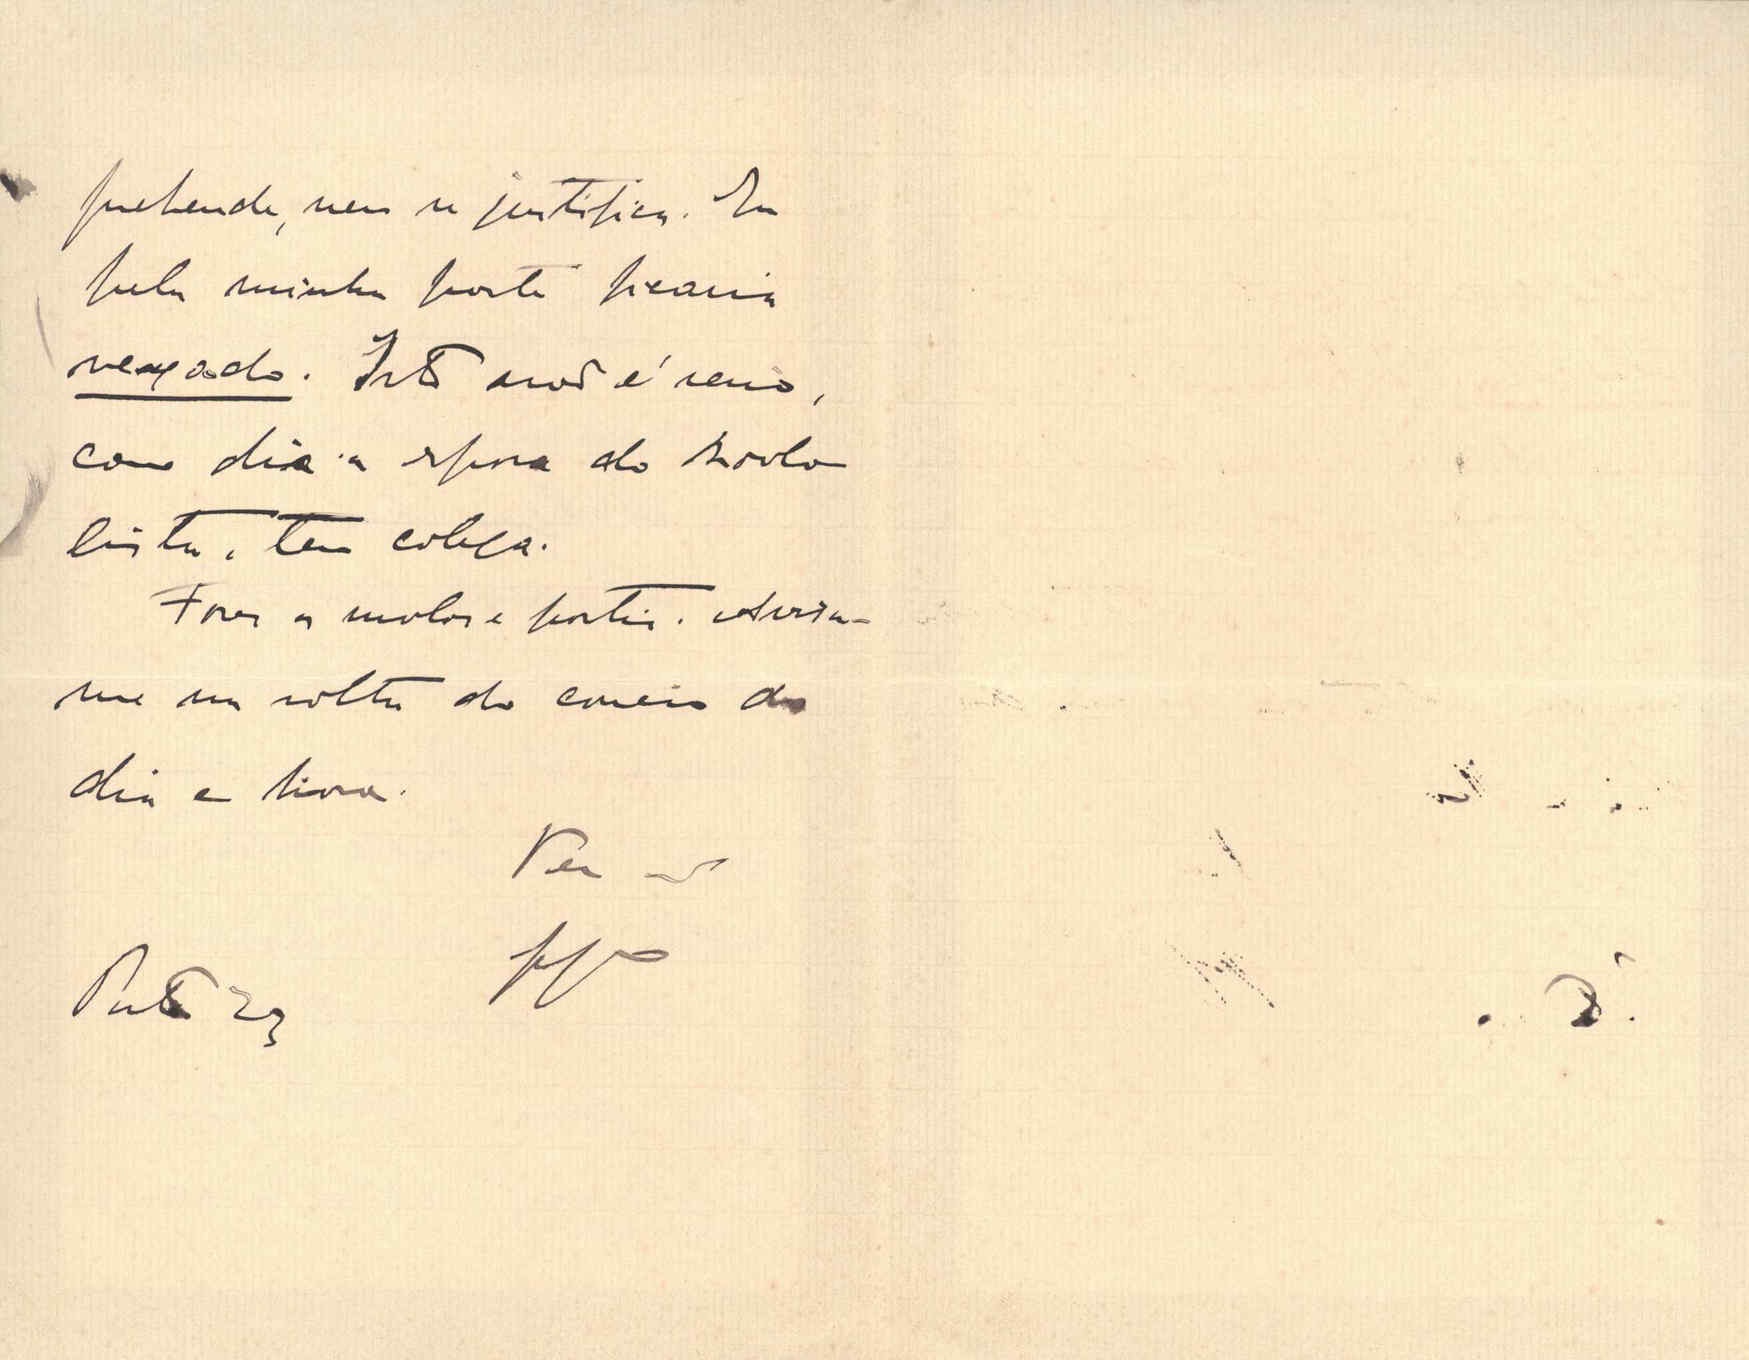 pretende, nem se justifica. Eu
pela minha parte ficaria
vexado. Isto não é serio,
como dizia a esposa do
lista, tem colega.
Fazer a mala e partir. Avisa-
me na volta do correio do
dia e hora.
Teu
Porto 23